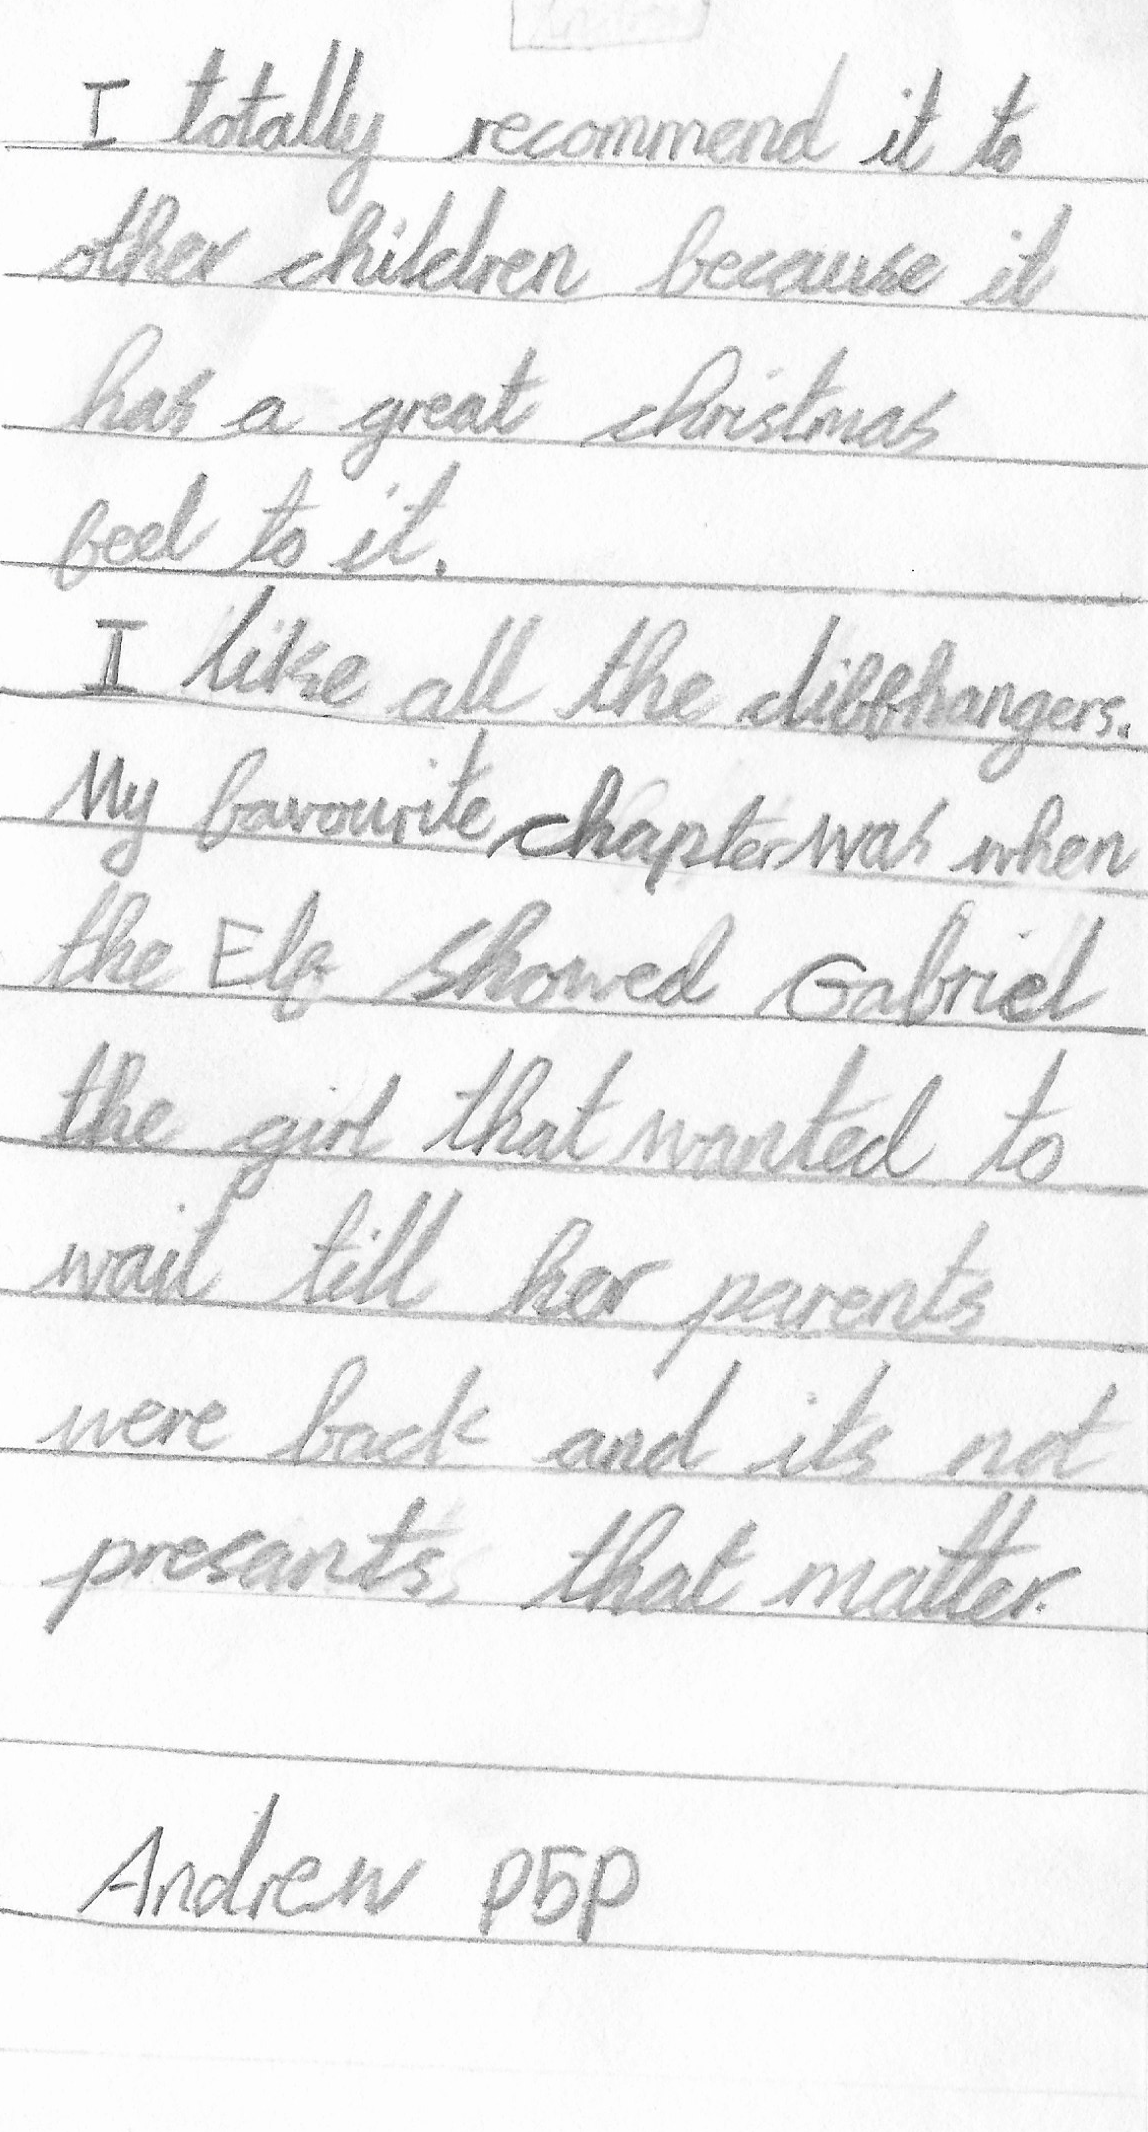 I totally recommend it to
other children because it
has a great christmas
feel to it.
I like all the cliffhangers.
My favourite chapter was when
the Elf showed Gabriel
the girl that wanted to
wait till her parents
were back and its not
presants that matter.
Andrew P5P